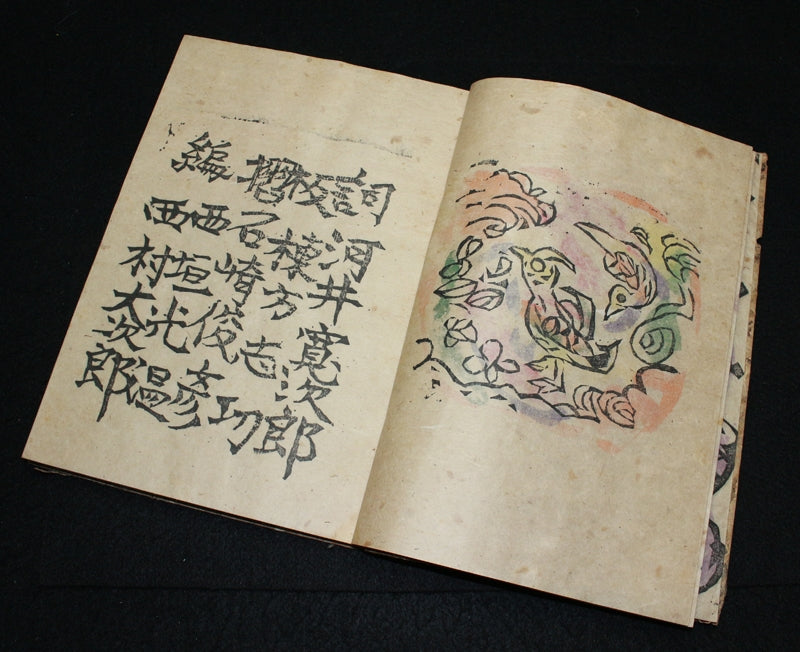 詞 河井寛次郎
板 棟方志功
摺 石崎俊彦
西垣光温
編 西村大次郎